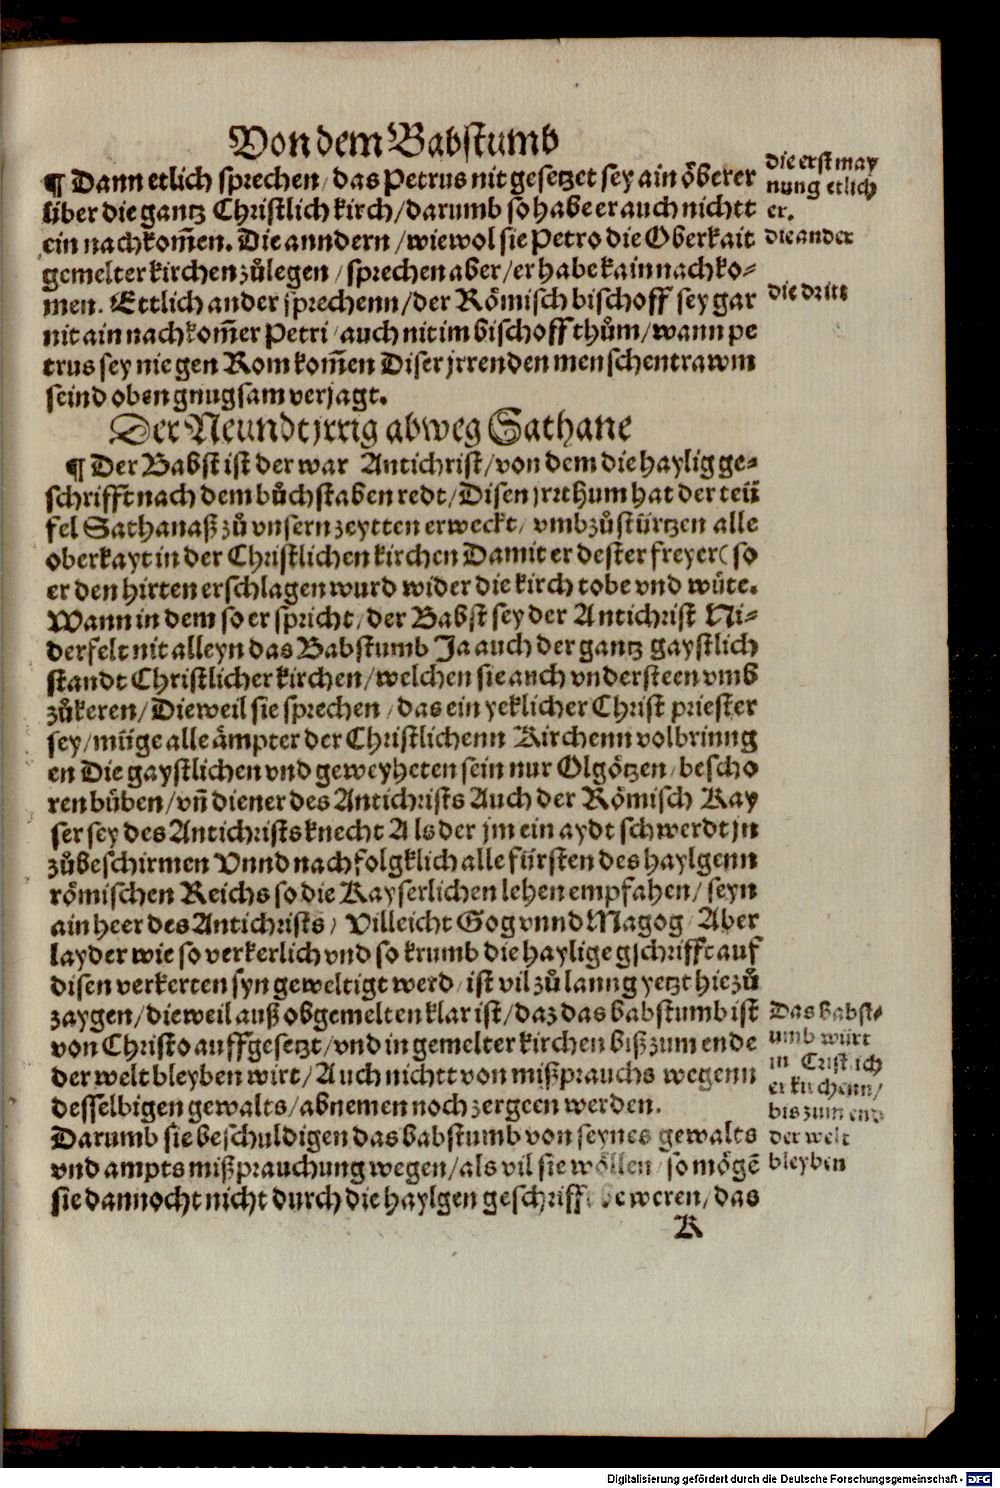 Von dem Babstumb
¶ Dann etlich sprechen/das Petrus nit gesetzet sey ain öberer
über die gantz Christlich kirch/darumb so habe er auch nichtt
ein nachkom̄en. Die anndern/wiewol sie Petro die Oberkait
gemelter kirchen zůlegen/sprechen aber/er habe kain nachko-
men. Ettlich ander sprechenn/der Römisch bischoff sey gar
nit ain nachkom̄er Petri/auch nit im bischoffthům/wann pe
trus sey nie gen Rom kom̄en Diser jrrenden menschen trawm
seind oben gnugsam verjagt.
die erst may
nung etlich
er.
die ander
die dritt
Der Neundt jrrig abweg Sathane
¶ Der Babst ist der war Antichrist/von dem die haylig ge-
schrifft nach dem bůchstaben redt/Disen jrrthum hat der teü
fel Sathanaß zů vnsern zeytten erweckt/vmbzůstürtzen alle
oberkayt in der Christlichen kirchen Damit er dester freyer(so
er den hirten erschlagen wurd wider die kirch tobe vnd wüte.
Wann in dem so er spricht/der Babst sey der Antichrist Ni-
derfelt nit alleyn das Babstumb Ja auch der gantz gaystlich
standt Christlicher kirchen/welchen sie auch vndersteen vmb
zůkeren/Dieweil sie sprechen/das ein yeklicher Christ priester
sey/müge alle ämpter der Christlichenn Kirchenn volbrinng
en Die gaystlichen vnd geweyheten sein nur Olgötzen/bescho
ren büben/vn̄ diener des Antichrists Auch der Römisch Kay
ser sey des Antichrists knecht Als der jm ein aydt schwerdt jn
zůbeschirmen Vnnd nachfolgklich alle fürsten des haylgenn
römischen Reichs so die Kayserlichen lehen empfahen/seyn
ain heer des Antichrists/Villeicht Gog vnnd Magog/Aber
layder wie so verkerlich vnd so krumb die haylige gschrifft auf
disen verkerten syn geweltigt werd/ist vil zů lanng yetzt hie zů
zaygen/dieweil auß obgemelten klar ist/daz das babstumb ist
von Christo auffgesetzt/vnd in gemelter kirchen biß zum ende
der welt bleyben wirt/Auch nichtt von mißprauchs wegenn
desselbigen gewalts/abnemen noch zergeen werden.
Darumb sie beschuldigen das babstumb von seynes gewalts
vnd ampts mißprauchung wegen/als vil sie wöllen/so mögē
sie dannocht nicht durch die haylgen geschrifft beweren/das
Das babst-
umb würt
in Cristlich
er kirchenn/
bis zum end
der welt
bleyben
K
Digitalisierung gefördert durch die Deutsche Forschungsgemeinschaft - DFG